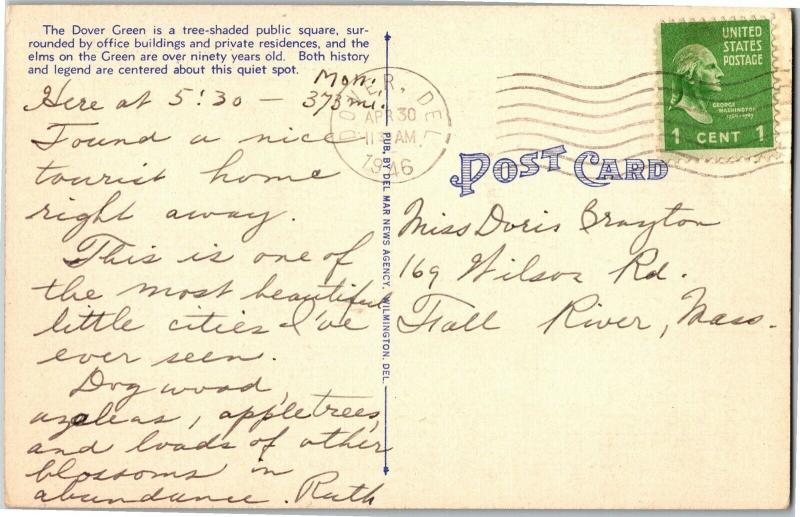 The Dover Green is a tree-shaded public square, sur-
rounded by office buildings and private residences, and the
elms on the Green are over ninety years old. Both history
and legend are centered about this quiet spot.
Mon.
Here at 5:30 — 373 mi.
Found a nice
tourist home
right away.
This is one of
the most beautiful
little cities I've
ever seen.
Dogwood,
azaleas, appletrees,
and loads of other
blossoms in
abundance. Ruth
PUB. BY DEL MAR NEWS AGENCY, WILMINGTON, DEL.
DOVER, DEL.
APR 30
AM
1946
UNITED
STATES
POSTAGE
GEORGE
WASHINGTON
1 CENT 1
POST CARD
Miss Doris Brayton
169 Wilson Rd.
Fall River, Mass.